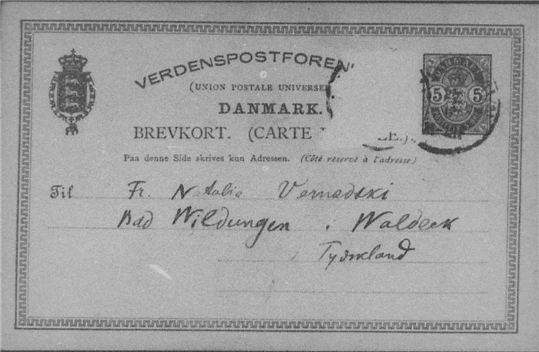 VERDENSPOSTFOREN
(UNION POSTALE UNIVERSE
DANMARK.
5 5
BREVKORT. (CARTE
Paa denne Side skrives kun Adressen. (Côté réservé à l'adresse)
Til Fr. Natalia Vernadski
Bad Wildungen. Waldeck
Tyskland